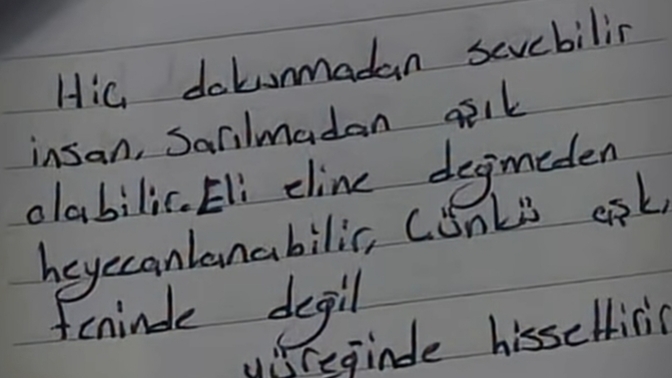 Hiç dokunmadan sevebilir
insan, Sarılmadan aşık
olabilir. Eli eline değmeden
heyecanlanabilir, Çünkü aşk,
teninde değil
yüreğinde hissettirir